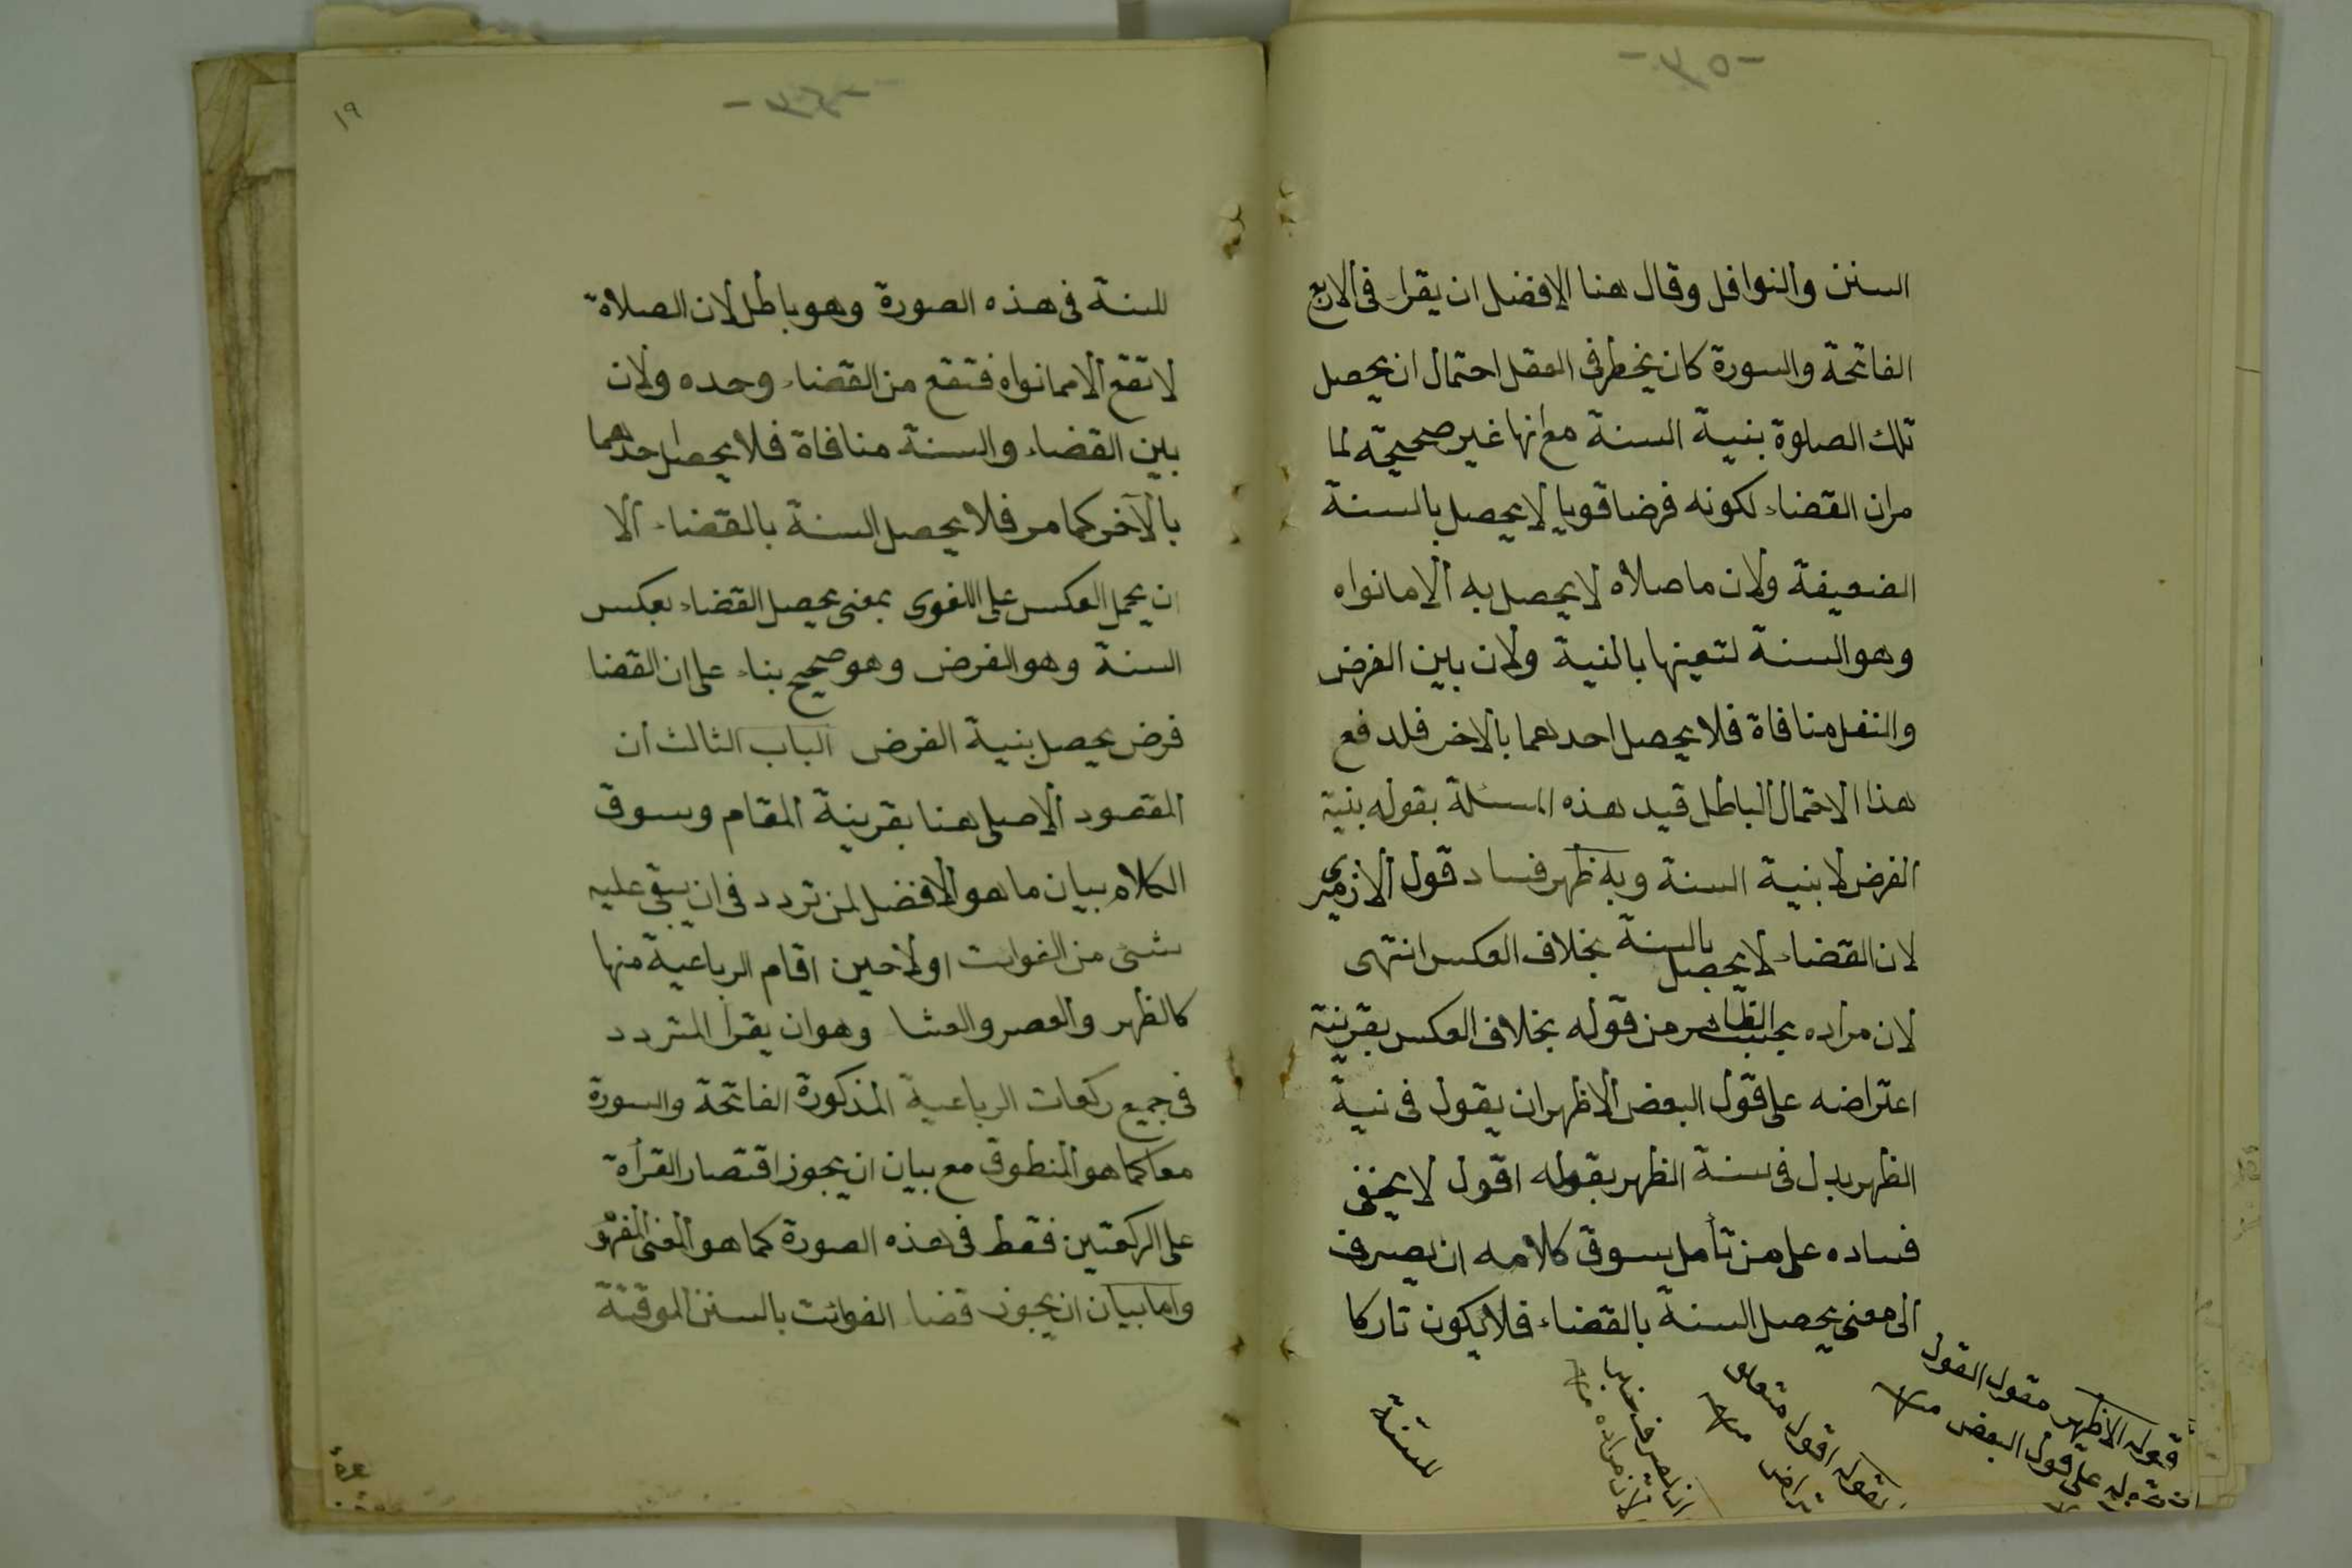 السنن والنوافل وقال هنا الافضل ان يقرا فى الاربع
الفاتحة والسورة كان يخطر فى العقل احتمال ان يحصل
تلك الصلوة بنية السنة مع انها غير صحيحة لما
مر ان القضاء لكونه فرضا قويا لا يحصل بالسنة
الضعيفة ولان ما صلاه لا يحصل به الا ما نواه
وهو السنة لتعينها بالنية ولان بين الفرض
والنفل منافاة فلا يحصل احدهما بالاخر فلدفع
هذا الاحتمال الباطل قيد هذه المسئلة بقوله بنية
الفرض لا بنية السنة وبه ظهر فساد قول الازميرى
لان القضاء لا يحصل بالسنة بخلاف العكس انتهى
لان مراده بحسب الظاهر من قوله بخلاف العكس بقرينة
اعتراضه على قول البعض الاظهر ان يقول فى نية
الظهر بدل فى سنة الظهر بقوله اقول لا يخفى
فساده على من تأمل سوق كلامه ان يصرف
الى معنى يحصل السنة بالقضاء فلا يكون تاركا
قوله الاظهر مقول القول
على قول البعض منه
بقوله اقول متعلق
منه
ان يصرف خبر
لان مراده منه
للسنة
١٩
للسنة فى هذه الصورة وهو باطل لان الصلاة
لا تقع الا مما نواه فتقع من القضاء وحده ولان
بين القضاء والسنة منافاة فلا يحصل احدهما
بالآخر كما مر فلا يحصل السنة بالقضاء الا
ان يحمل العكس على اللغوى بمعنى يحصل القضاء بعكس
السنة وهو الفرض وهو صحيح بناء على ان القضا
فرض يحصل بنية الفرض الباب الثالث ان
المقصود الاصلى هنا بقرينة المقام وسوق
الكلام بيان ما هو الافضل لمن تردد فى ان يبقى عليه
شئ من الفوايت اولا حين اقام الرباعية منها
كالظهر والعصر والعشا وهو ان يقرأ المتردد
فى جميع ركعات الرباعية المذكورة الفاتحة والسورة
معا كما هو المنطوق مع بيان ان يجوز اقتصار القرأة
على الركعتين فقط فى هذه الصورة كما هو المعنى
واما بيان ان يجوز قضا الفوائت بالسنن الموقتة